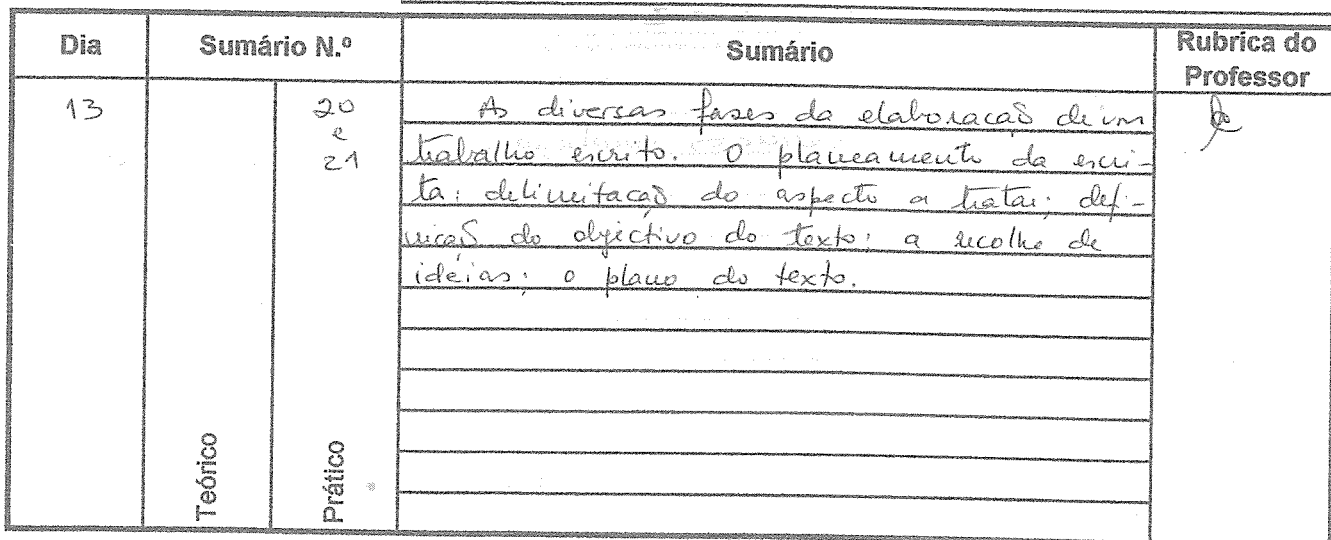 Dia Sumário N.º Sumário Rubrica do Professor
13 20 As diversas fases da elaboração de um
e trabalho escrito. O planeamento da escri-
21 ta: delimitação do aspecto a tratar; defi-
nição do objectivo do texto; a recolha de
ideias; o plano do texto.
Teórico Prático